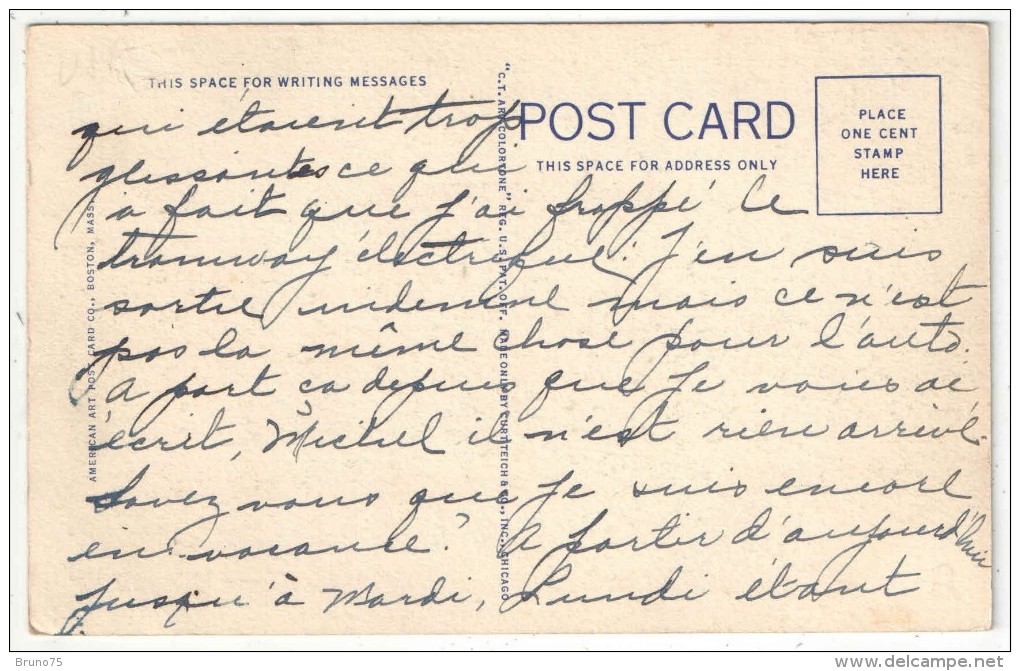 THIS SPACE FOR WRITING MESSAGES
POST CARD
THIS SPACE FOR ADDRESS ONLY
PLACE
ONE CENT
STAMP
HERE
"C.T. ART-COLORTONE" REG. U.S. PAT. OFF. MADE ONLY BY CURT TEICH & CO., INC., CHICAGO
AMERICAN ART POST CARD CO., BOSTON, MASS.
qui étaient trop
glissantes ce qui
a fait que j'ai frappé le
tramway électrique. J'en suis
sortie indemne mais ce n'est
pas la même chose pour l'auto.
A part ca depuis que je vous ai
écrit, Michel il n'est rien arrivé.
Savez vous que je suis encore
en vacance? A partir d'aujourd'hui
jusqu'à Mardi, Lundi étant
Bruno75
www.delcampe.net